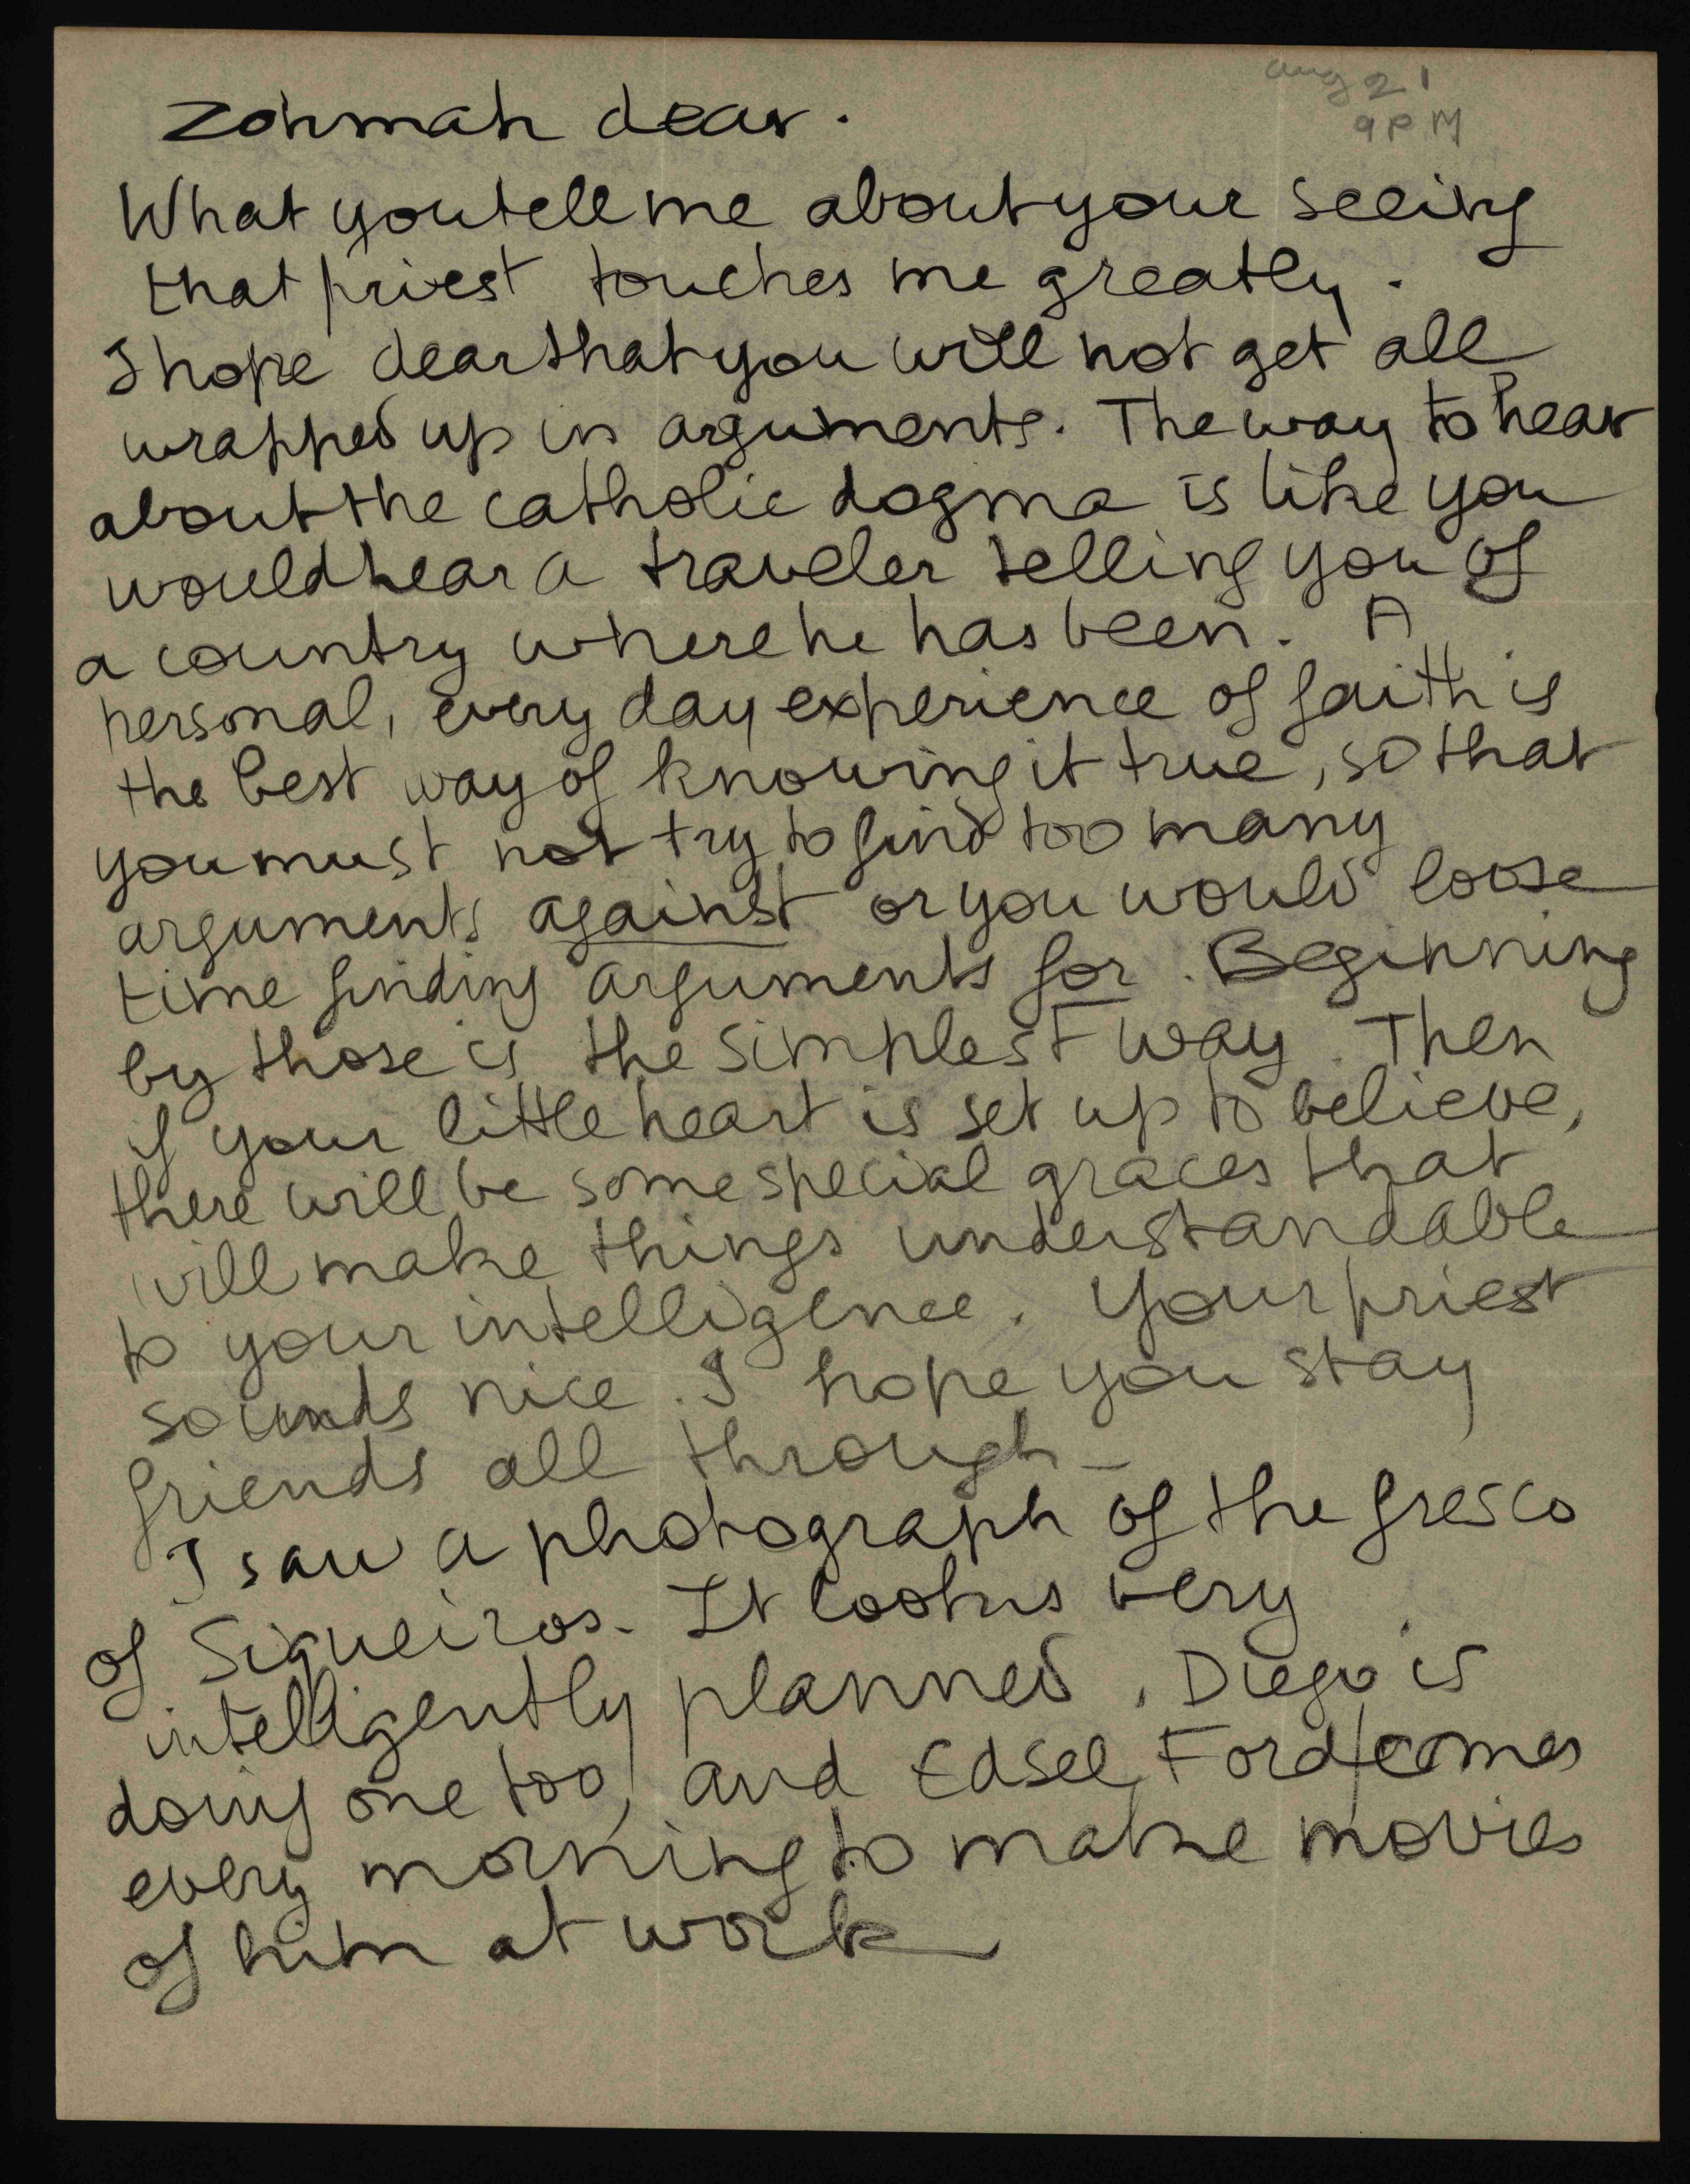 aug 21
9 P M
Zohmah dear.
What you tell me about your seeing
that priest touches me greatly.
I hope dear that you will not get all
wrapped up in arguments. The way to hear
about the catholic dogma is like you
would hear a traveler telling you of
a country where he has been. A
personal, every day experience of faith is
the best way of knowing it true, so that
you must not try to find too many
arguments against or you would loose
time finding arguments for. Beginning
by those is the simplest way. Then
if your little heart is set up to believe,
there will be some special graces that
will make things understandable
to your intelligence. Your priest
sounds nice. I hope you stay
friends all through –
I saw a photograph of the fresco
of Siqueiros. It looks very
intelligently planned. Diego is
doing one too, and Edsel Ford comes
every morning to make movies
of him at work